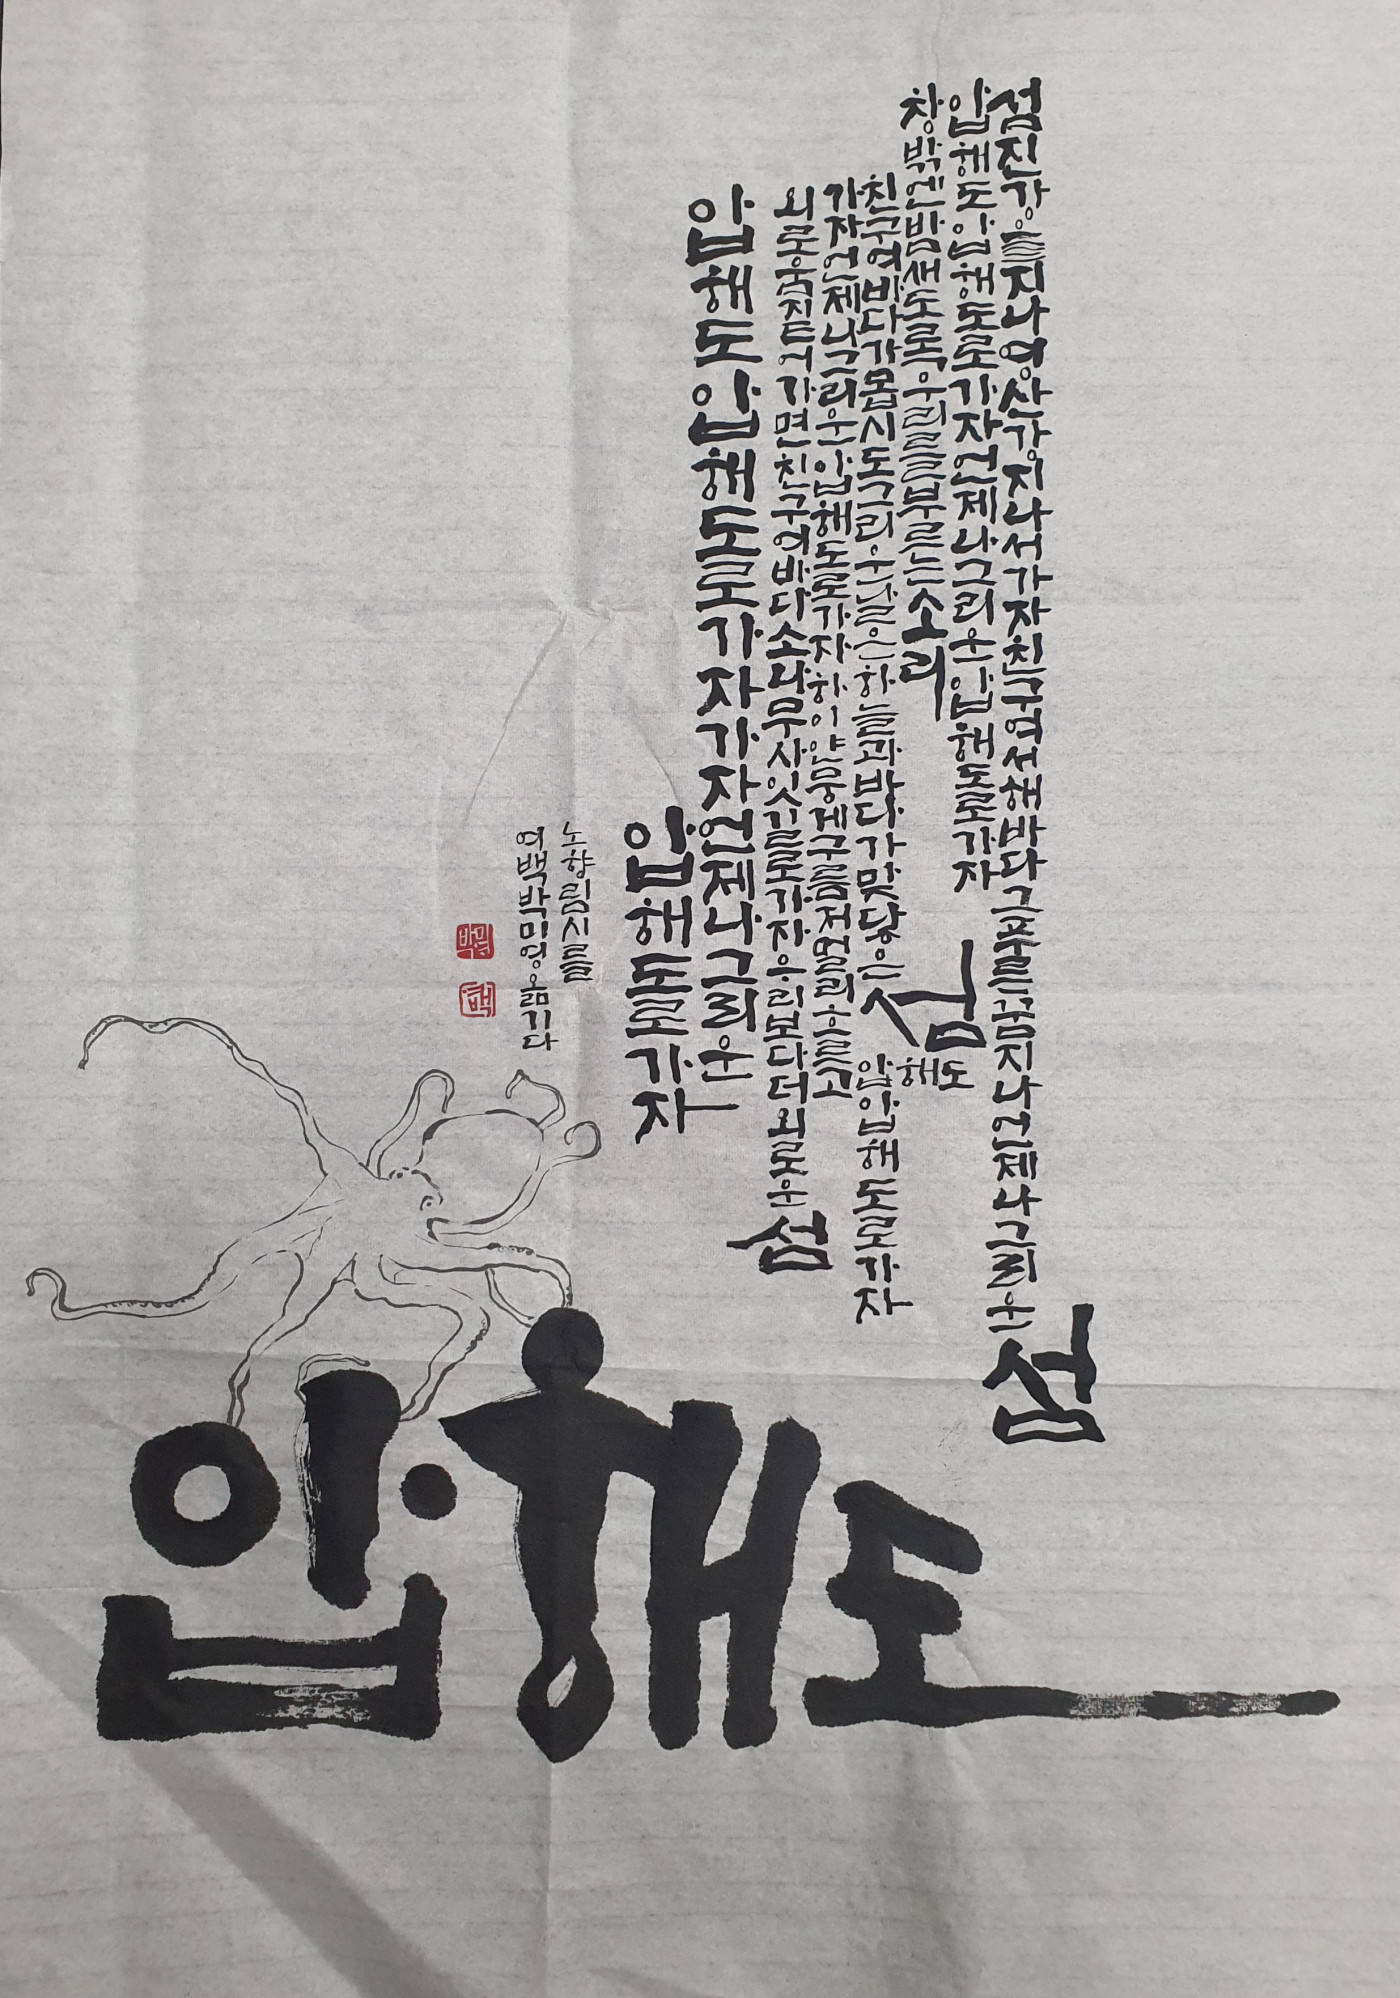 섬진강을지나영산강지나서가자친구여서해바다그푸른꿈지나언제나그리운섬
압해도압해도로가자언제나그리운압해도로가자
창밖엔밤새도록우리를부르는소리
친구여바다가몹시도그리운날은하늘과바다가맞닿은섬
압해도
압해도로가자
가자언제나그리운압해도로가자하이얀뭉게구름저멀리흐르고
외로움짙어가면친구여바다소나무사잇길로가자우리보다더외로운섬
압해도압해도로가자가자언제나그리운
압해도로가자
노향림시를
여백박미영옮기다
압해도